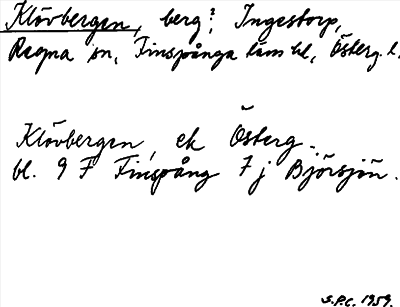 Klövbergen, berg? Ingestorp,
Regna sn, Finspånga läns hd, Österg. l.
Klövbergen, ek Österg.
bl. 9 F Finspång 7 j Björsjön.
S.P.C. 1959.